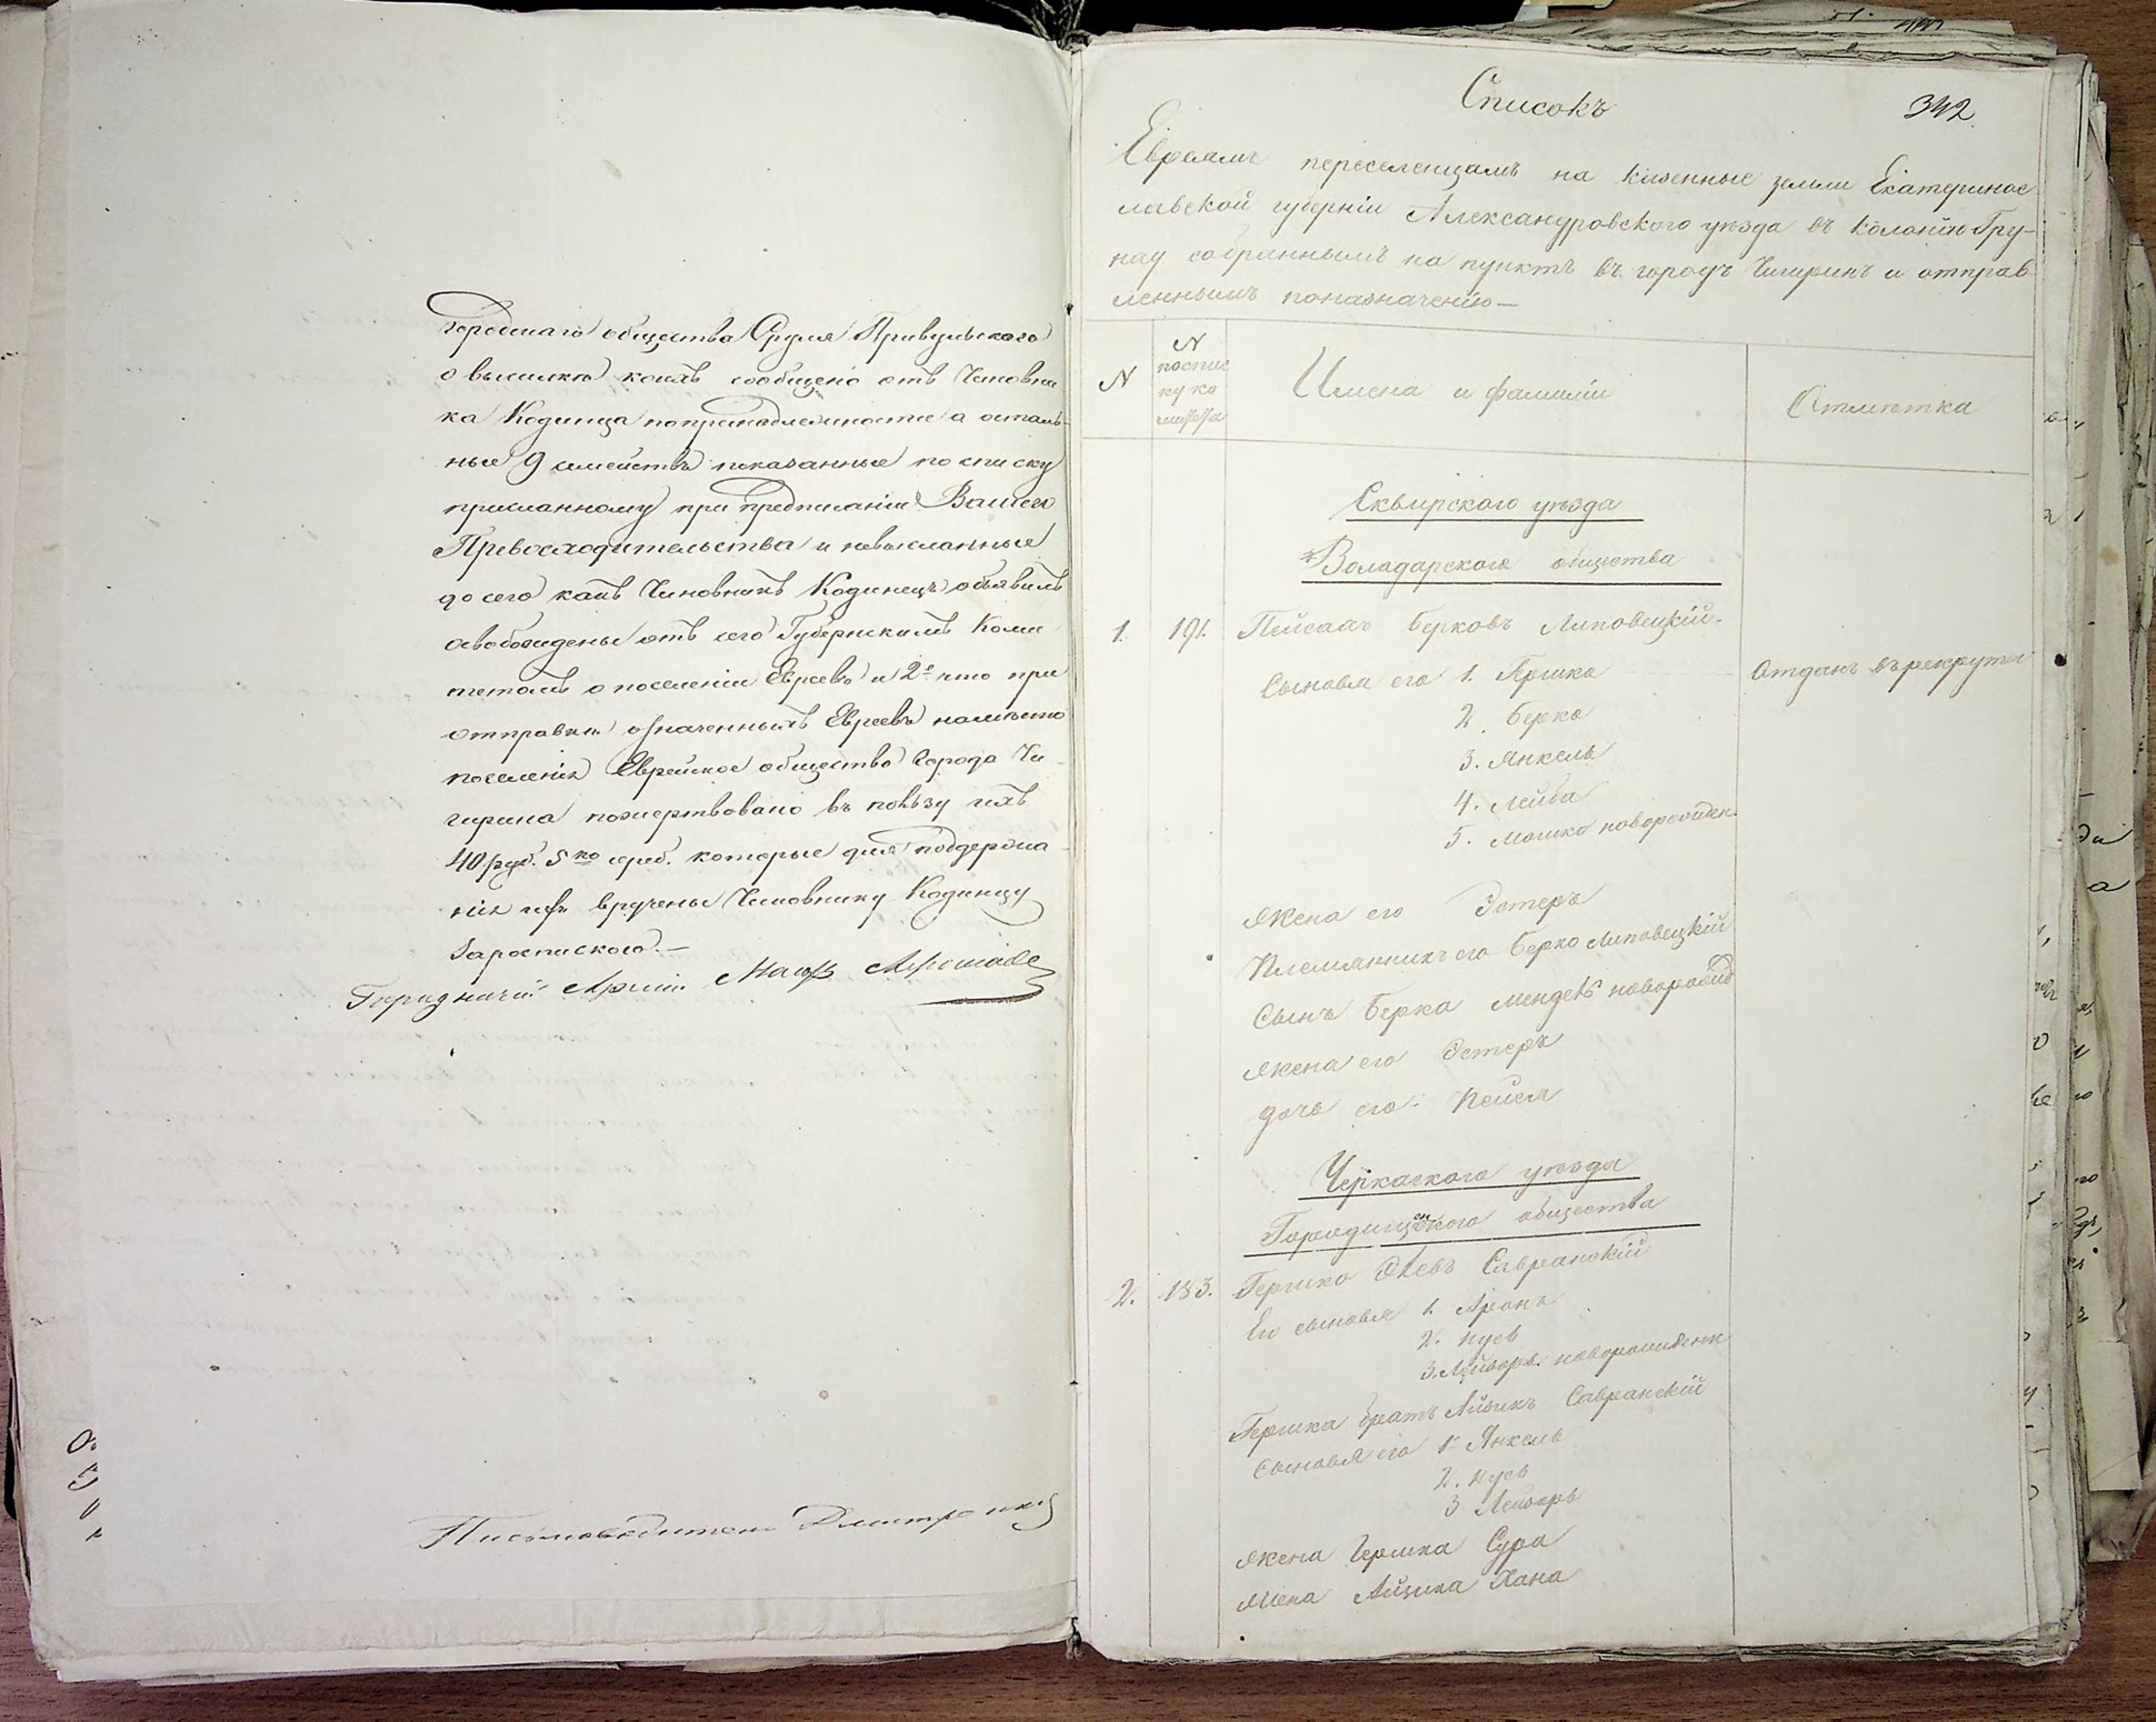 общества Сруля Привульского
о высылке коихъ сообщено отъ Чиновни
ка Кодинца попринадлежности а осталь-
ные 9 семействъ показанные по списку
присланному при предписаніи Вашего
Превосходительства и невысланные
до сего какъ Чиновникъ Кодинецъ объявилъ
освобождены отъ сего Губернскимъ Коми
тетомъ о поселеніи Евреевъ и 2е что при
отправки означенныхъ Евреевъ наместо
поселенія Еврейское общество города Чи
гирина пожертвовано въ пользу ихъ
40 руб. 5 ко сереб. которые для поддержа-
нія ихъ вручены Чиновнику Кодинцу
заросписκою.—
Городничій Маіоръ
Письмоводитель Дмитренко
Списокъ
342
Евреямъ переселенцамъ на казенные земли Екатеринос
лавской губерніи Александровского уезда въ колонію Гру-
нау собраннымъ на пунктъ въ городъ Чигиринъ и отправ
леннымъ поназначенію—
N
N
поспис
ку ко
митета
Имена и фамиліи
Отметка
Сквирского уезда
Воладарского общества
1. 191. Пейсахъ Берковъ Липовецкій.
Сыновья его 1. Гершко Отданъ въ рекруты
2. Берко
3. Янкель
4. Лейба
5. Мошко новорожден.
Жена его Эстеръ
Племянникъ его Берко Липовецкій
Сынъ Берка Мендель новорожд
Жена его Эстеръ
дочь его Пейся
Черкаского уезда
Городищенского общества
2. 183. Гершко Савранскій
Его сыновья 1. Аронъ
2. Нусь
3. Лейзоръ новорожденн
Гершка братъ Айзикъ Савранскій
Сыновья его 1. Янкель
2. Нусь
3. Лейзоръ
Жена Гершка Сура
Жена Айзика Хана